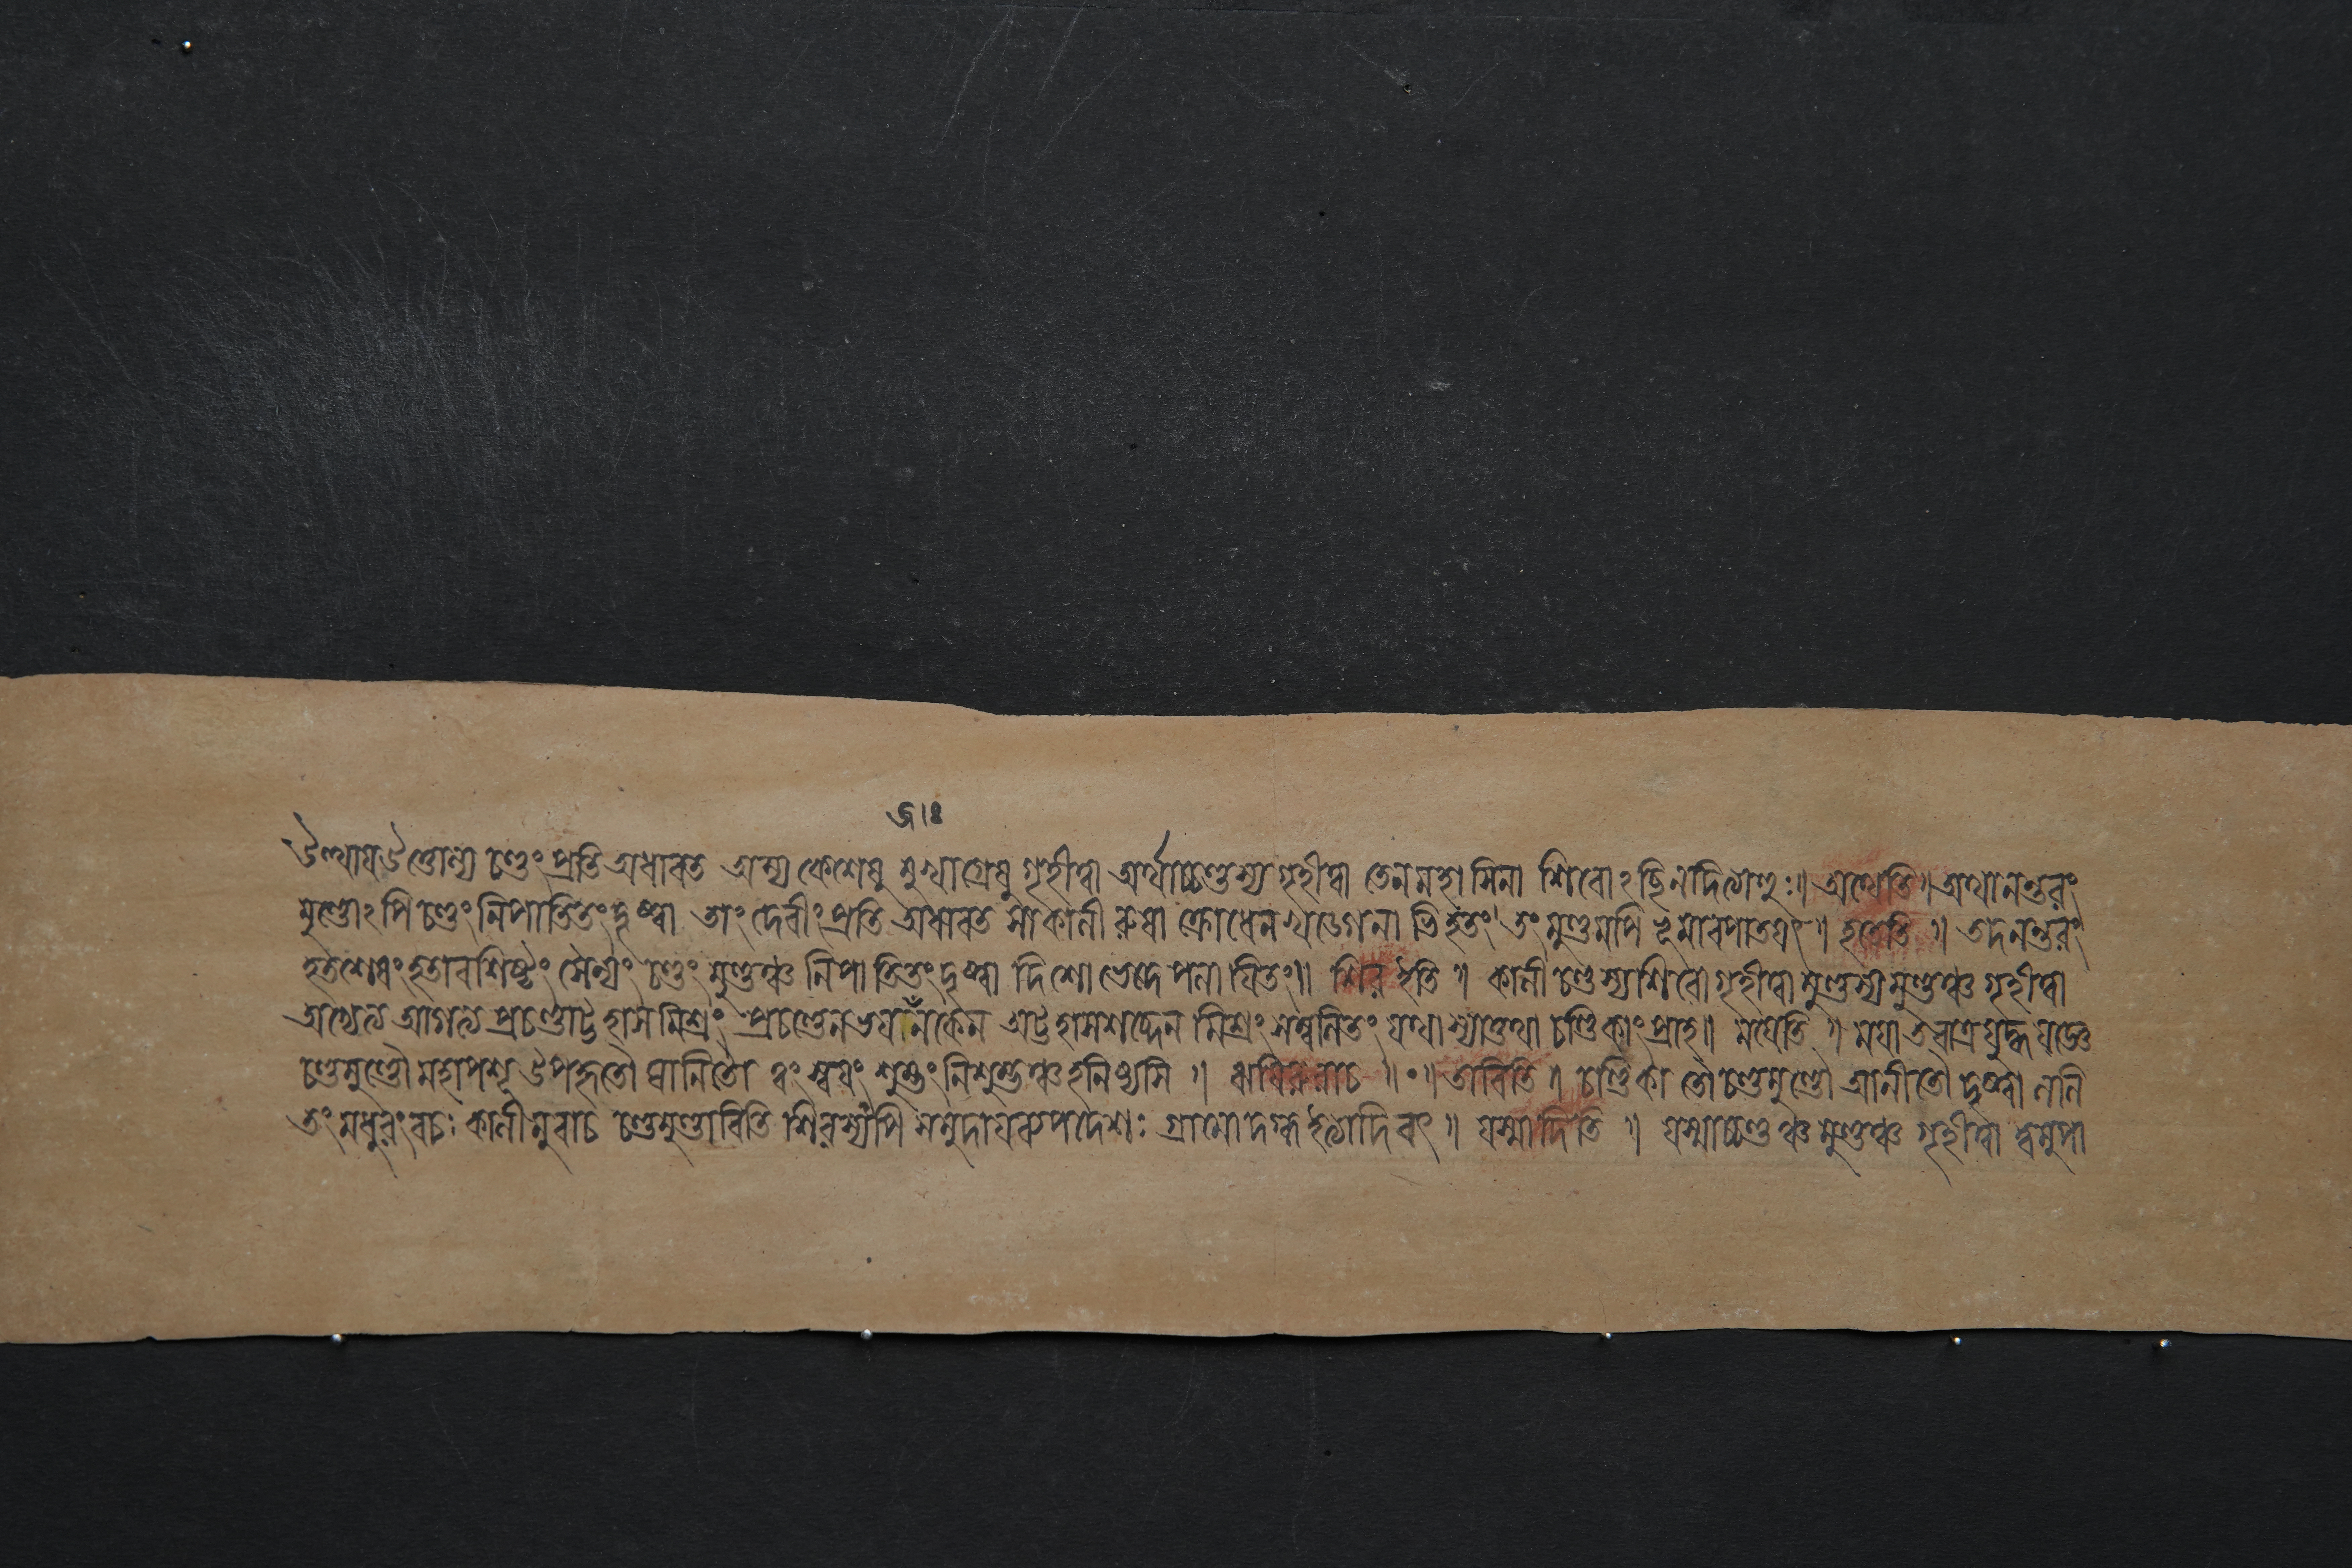 উত্থায উত্তোল্য চণ্ডং প্রতি অধাবত অস্য কেশেষু মুখাগ্রেষু গৃহীত্বা অর্থাচ্চণ্ডস্য গৃহীত্বা তেন মহাসিনা শিরোঽছিনদিত্যণুঃ॥ অথেতি॥ অথানন্তরং
মুণ্ডোঽপি চণ্ডং নিপাতিতং দৃষ্ট্বা তাং দেবীং প্রতি অধাবত সা কালী রুষা ক্রোধেন খড্গেনাভিহতং তং মুণ্ডমপি ভূমাবপাতযৎ॥ হতেতি॥ তদনন্তরং
হতশেষং হতাবশিষ্টং সৈন্যং চণ্ডং মুণ্ডঞ্চ নিপাতিতং দৃষ্ট্বা দিশো পলাযিতং॥ শির ইতি॥ কালী চণ্ডস্য শিরো গৃহীত্বা মুণ্ডস্য মুণ্ডঞ্চ গৃহীত্বা
অভ্যেত্য আগত্য প্রচণ্ডাট্টহাসমিশ্রং প্রচণ্ডেন ভযানকেন অট্টহাসশব্দেন মিশ্রং সম্বলিতং যথা স্যাত্তথা চণ্ডিকাং প্রাহ॥ মযেতি॥ মযা তবাত্র যুদ্ধযজ্ঞে
চণ্ডমুণ্ডৌ মহাপশূ উপহৃতৌ ঘাতিতৌ ত্বং স্বযং শুম্ভং নিশুম্ভঞ্চ হনিষ্যসি॥ ঋষিরুবাচ॥০॥ তাবিতি॥ চণ্ডিকা তৌ চণ্ডমুণ্ডৌ আনীতৌ দৃষ্ট্বা ললি
তং মধুরং বচঃ কালীমুবাচ চণ্ডমুণ্ডাবিতি শিরস্যপি সমুদাযব্যপদেশঃ গ্রামো দগ্ধ ইত্যাদিবৎ॥ যস্মাদিতি॥ যস্মাচ্চণ্ডঞ্চ মুণ্ডঞ্চ গৃহীত্বা ত্বমুপা